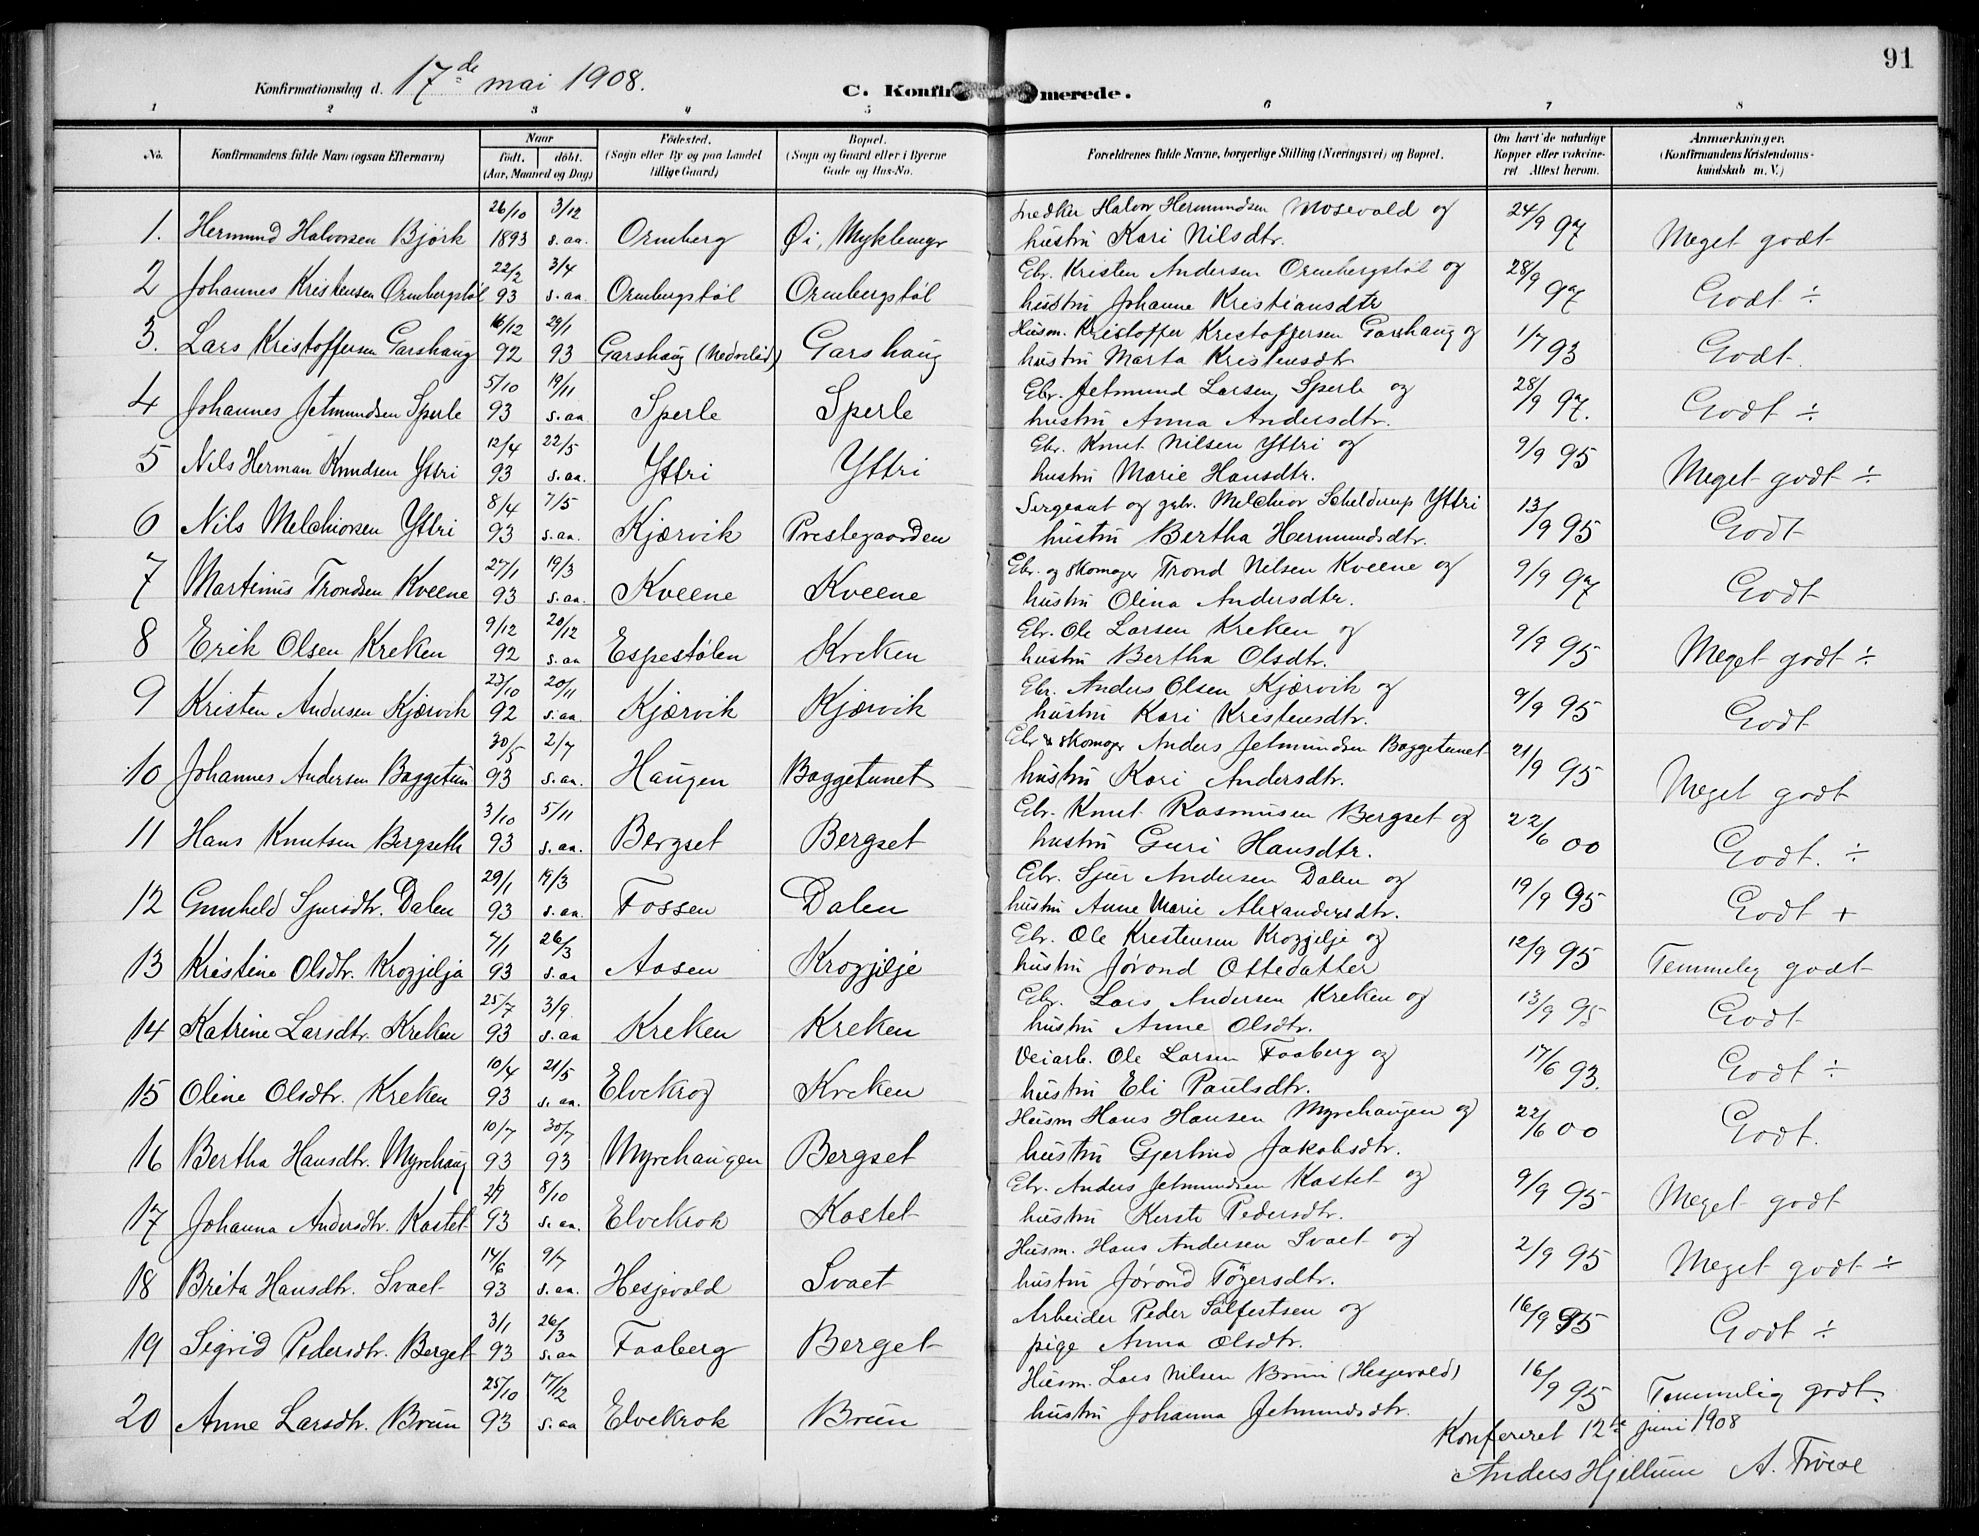 91
Konfirmationsdag d. 17de mai 1908.
C. Konfirmerede.
1 2 3 4 5 6 7 8
No. Konfirmandens fulde Navn (ogsaa Efternavn) Naar født. døbt. (Aar, Maaned og Dag) Fødested. (Sogn eller By og paa Landet tillige Gaard) Bopæl. (Sogn og Gaard eller i Byerne Gade og Hus-No. Forældrenes fulde Navne, borgerlige Stilling (Næringsvei) og Bopæl. Om havt de naturlige Kopper eller vakcineret Attest herom. Anmærkninger. (Konfirmandens Kristendomskundskab m. V.)
1. Hermund Halvorsen Bjørk 26/10 1893 3/12 s. aa. Ormberg Øi, Myklemyr Snedker Halvor Hermundsen Mosevold og
hustru Kari Nilsdtr. 24/9 97 Meget godt
2 Johannes Kristensen Ormbergstøl 22/2 93 3/4 s. aa. Ormbergstøl Ormbergstøl Gbr. Kristen Andersen Ormbergstøl og
hustru Johanne Kristiansdtr 28/9 97 Godt ÷
3. Lars Kristoffersen Garshaug 16/12 92 29/1 93 Garshaug (Nedrelid) Garshaug Husm. Kristoffer Kristoffersen Garshaug og
hustru Marta Kristensdtr 1/7 93 Godt
4 Johannes Jetmundsen Sperle 5/10 93 19/11 s. aa. Sperle Sperle Gbr. Jetmund Larsen Sperle og
hustru Anna Andersdtr. 28/9 97. Godt ÷
5 Nils Herman Knudsen Yttri 12/4 93 22/5 s. aa. Yttri Yttri Gbr. Knut Nilsen Yttri og
hustru Marie Hansdtr. 9/9 95 Meget godt ÷
6 Nils Melchiorsen Yttri 8/4 93 7/5 s. aa. Kjærvik Prestegaarden Sergeant og gbr. Melchior Schelderup Yttri
hustru Bertha Hermundsdtr. 13/9 95 Godt
7 Martinus Trondsen Kveene 27/1 93 19/3 s. aa. Kveene Kveene Gbr. og skomager Trond Nilsen Kveene og
hustru Olina Andersdtr. 9/9 97 Godt
8 Erik Olsen Kreken 9/12 92 20/12 s. aa Espestølen Kreken Gbr. Ole Larsen Kreken og
hustru Bertha Olsdtr. 9/9 95 Meget godt ÷
9 Kristen Andersen Kjærvik 23/10 92 20/11 s. aa. Kjærvik Kjærvik Gbr. Anders Olsen Kjærvik og
hustru Kari Kristensdtr. 9/9 95 Godt
10 Johannes Andersen Baggetun 30/5 93 2/7 s. aa. Haugen Baggetunet Gbr & skomager Anders Jetmundsen Baggetunet
hustru Kari Andersdtr. 21/9 95 Meget godt
11 Hans Knutsen Bergseth 3/10 93 5/11 s. aa. Bergset Bergset Gbr. Knut Rasmusen Bergset og
hustru Guri Hansdtr. 22/6 00 Godt. ÷
12 Gunheld Sjursdtr. Dalen 29/1 93 19/3 s. aa. Fossen Dalen Gbr. Sjur Andersen Dalen og
hustru Anne Marie Alexandersdtr. 19/9 95 Godt +
13 Kristine Olsdtr. Krogjilja 7/1 93 26/3 s. aa Aasen Krogjilje Gbr. Ole Kristensen Krogjilje og
hustru Jørond Ottedatter 12/9 95 Temmelig godt
14 Katrine Larsdtr. Kreken 25/7 93 3/9 s. aa Kreken Kreken Gbr. Lars Andersen Kreken og
hustru Anne Olsdtr. 13/9 95 Godt
15 Oline Olsdtr. Kreken 10/4 93 21/5 s. aa. Elvekrog Kreken Veiarb. Ole Larsen Faaberg og
hustru Eli Paulsdtr. 17/6 93. Godt ÷
16 Bertha Hansdtr. Myrehaug 10/7 93 30/7 93 Myrehaugen Bergset Husm Hans Hansen Myrehaugen og
hustru Gjertrud Jakobsdtr. 22/6 00 Godt.
17 Johanna Andersdtr. Kastet 93 8/10 s. aa. Elvekrok Kastet Gbr. Anders Jetmundsen Kastet og
hustru Kersti Pedersdtr. 9/9 95 Meget godt
18 Brita Hansdtr. Svaet 14/6 93 9/7 s. aa. Hesjevold Svaet Husm. Hans Andersen Svaet og
hustru Jørond Tøgersdtr. 2/9 95 Meget godt ÷
19 Sigrid Pedersdtr. Berget 3/1 93 26/3 s. aa Faaberg Berget Arbeider Peder Salfestsen og
pige Anna Olsdtr. 16/9 95 Godt ÷
20 Anne Larsdtr. Brun 25/10 93 17/12 s. aa Elvekrok Brun Husm. Lars Nilsen Brun (Hesjevold)
hustru Johanna Jetmundsdtr. 16/9 95 Temmelig godt
Konfereret 12te juni 1908
Anders Hjellum A.